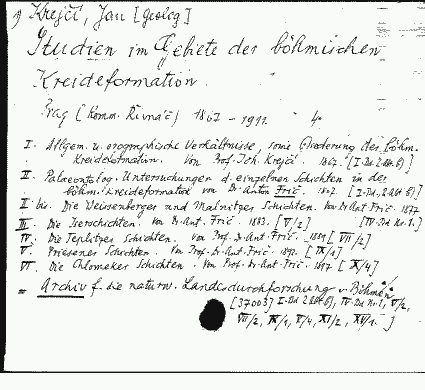 Krejčí, Jan [Geolog]
Studien im Gebiete der böhmischen
Kreideformation.
Prag (Komm. Řivnáč) 1867 - 1911. 4°
I. Allgem. u. orographische Verhältnisse, sowie Gliederung der böhm.
Kreideformation. Von Prof. Joh. Krejčí. 1867. [I. Bd. 2. Abt. B)]
II. Palaeontolog. Untersuchungen d. einzelnen Schichten in der
böhm. Kreideformation von Dr Anton Frič. [I. Bd. 2. Abt B)]
II bis. Die Weissenberger und Malnitzer Schichten. Von Dr Ant Frič. 1877
III. Die Iserschichten. Von Dr. Ant. Frič. 1883. [V/2] [IV. Bd. Nr. 1.]
IV. Die Teplitzer Schichten. Von Prof. Dr. Ant. Frič. 1889 [VII/2]
V. Priesener Schichten. Von Prof. Dr. Ant. Frič. 1893. [IX/1]
VI. Die Chlomeker Schichten. Von Prof. Dr. Ant. Frič. 1897 [X/4]
= Archiv f. die naturw. Landesdurchforschung v. Böhmen
[37003] I. Bd 2. Abt. B), IV. Bd. Nr. 1, V/2,
VII/2, IX/1, X/4, XI/2, XV/1. ]